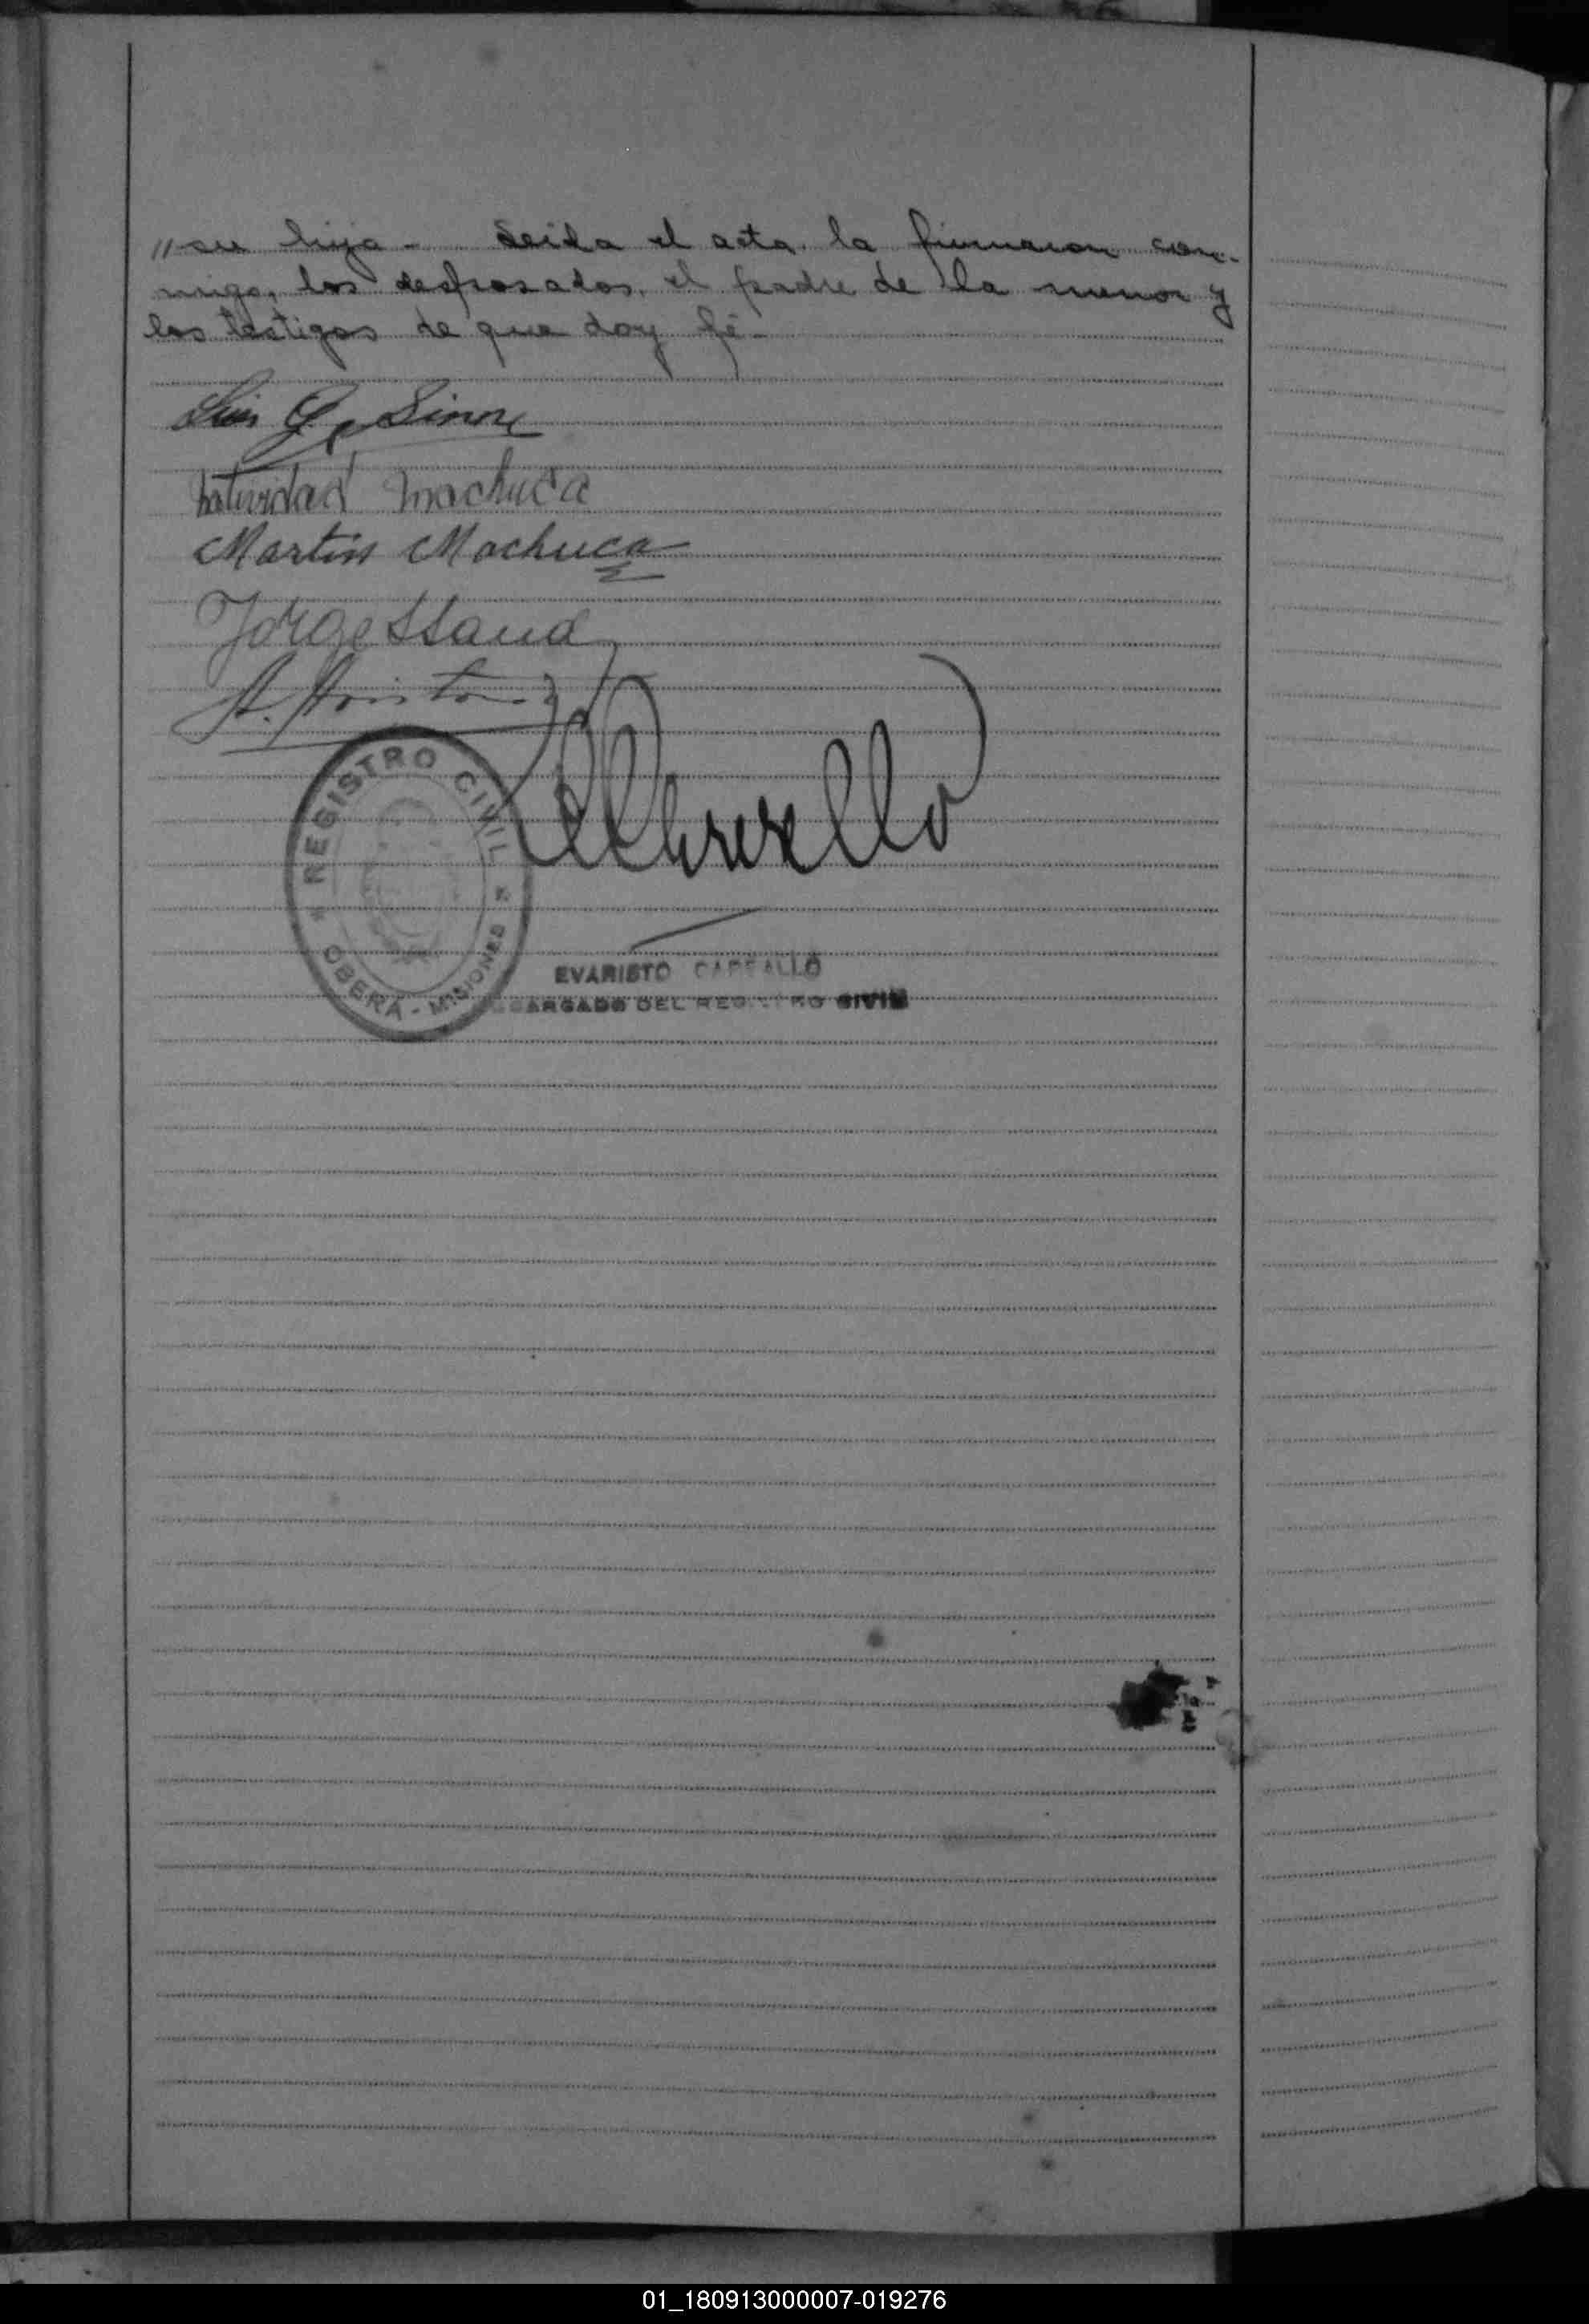 "su hija - Leida el acta, la firmaron con-
migo, los desposados, el padre de la menor y
los testigos de que doy fé -
Luis G. Simon
Natividad Machuca
Martin Machuca
Jorge
REGISTRO CIVIL
OBERÁ - MISIONES
EVARISTO
ENCARGADO DEL REGISTRO CIVIL
01_180913000007-019276